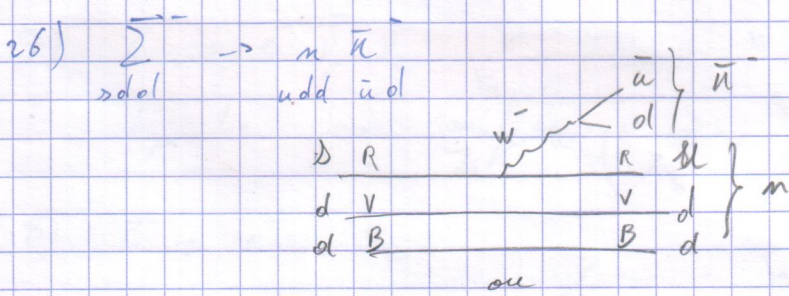 26) Σ⁻ → n π⁻
sdd udd ūd
ū } π⁻
W⁻ d
s R R u } n
d V V d
d B B d
ou